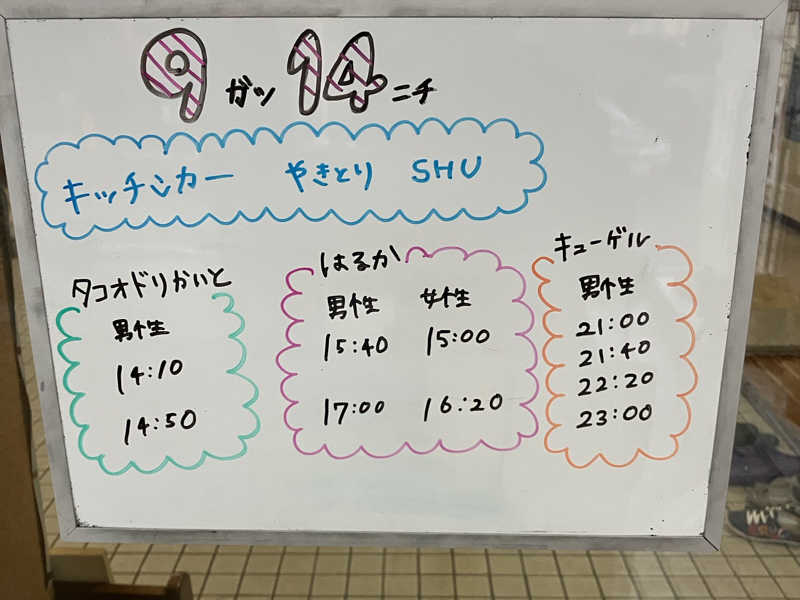 9ガツ14ニチ
キッチンカー やきとり SHU
タコオドリかいと
男性
14:10
14:50
はるか
男性 女性
15:40 15:00
17:00 16:20
キューゲル
男性
21:00
21:40
22:20
23:00